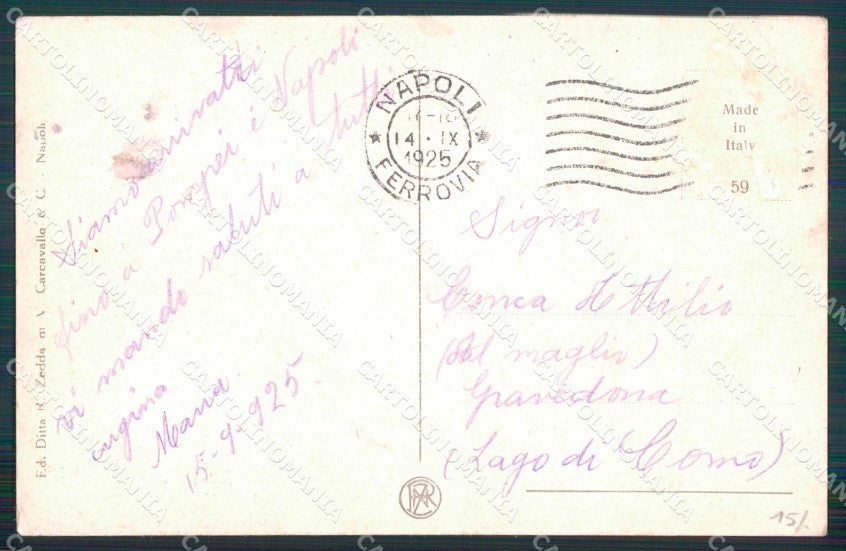 Siamo arrivatti
fino a Pompei é Napoli
vi mando saluti a tutti
cugina
Maria
15-9-925-
NAPOLI
14 · IX
1925
FERROVIA
Made
in
Italy
59
Signor
Conca Attilio
(Bal maglio)
Gravedona
(Lago di Como)
Ed. Ditta R. Zedda di V. Carcavallo & C. Napoli
15/-
CARTOLINOMANIA